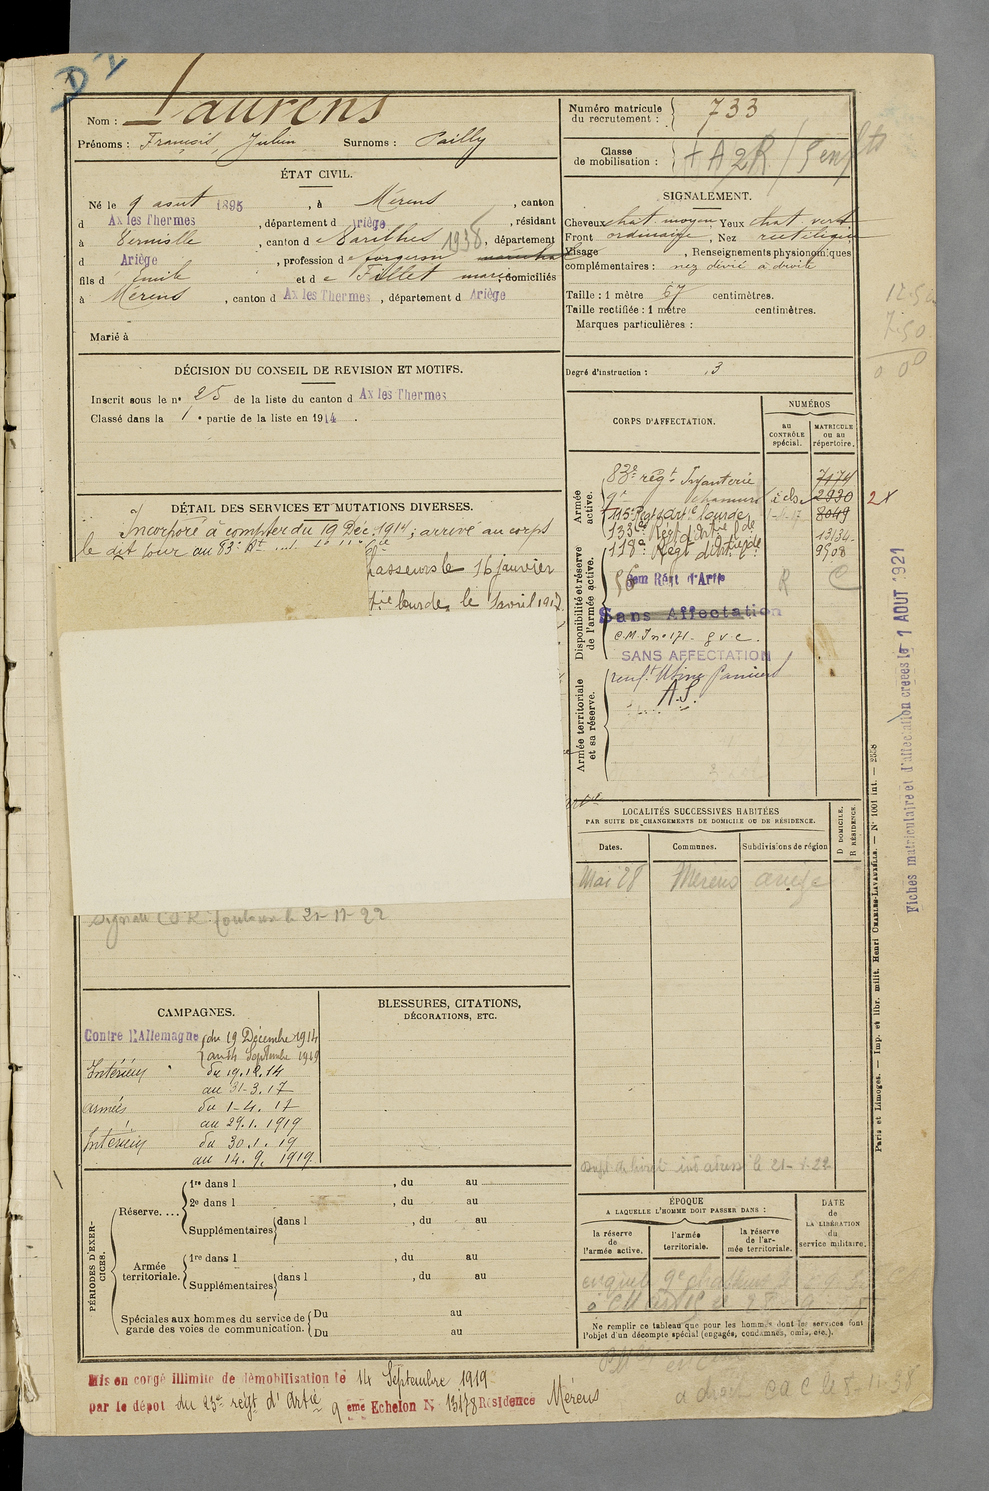 D
Nom : Laurens
Prénoms : François, Julien Surnoms : Pailly
Numéro matricule du recrutement : 733
Classe de mobilisation :
ÉTAT CIVIL.
Né le 9 août 1895, à Mérens, canton
d Ax les Thermes, département d Ariège, résidant
à Verniolle, canton d Varilhes 1938, département
d Ariège, profession de forgeron
fils d Emile et de Fillet marie, domiciliés
à Mérens, canton d Ax les Thermes, département d Ariège
Marié à
SIGNALEMENT.
Cheveux chat. moyen Yeux chat. verd.
Front ordinaire, Nez rectiligne
Visage , Renseignements physionomiques
complémentaires : nez dévié à droite
Taille : 1 mètre 67 centimètres.
Taille rectifiée : 1 mètre centimètres.
Marques particulières :
Degré d'instruction : 3
DÉCISION DU CONSEIL DE REVISION ET MOTIFS.
Inscrit sous le n° 25 de la liste du canton d Ax les Thermes
Classé dans la 1e partie de la liste en 1914.
CORPS D'AFFECTATION.
NUMÉROS
au CONTRÔLE spécial.
MATRICULE ou au répertoire.
Armée active.
83e régt Infanterie 7174
9e chasseurs 2990
115e Regt d'artie lourde 1-4-17 8049
133e Régt d'Artie lde 13134
118e Régt d'Artie lde 9508
Disponibilité et réserve de l'armée active.
Sans Affectation
SANS AFFECTATION
Armée territoriale et sa réserve.
A.S.
2 x
DÉTAIL DES SERVICES ET MUTATIONS DIVERSES.
Incorporé à compter du 19 Déc. 1914 ; arrivé au corps
le dit jour au 83e Rt
hasseurs le 16 janvier
tie lourde, le 1 avril 1917.
le 21-11-22
LOCALITÉS SUCCESSIVES HABITÉES
PAR SUITE DE CHANGEMENTS DE DOMICILE OU DE RÉSIDENCE.
Dates. Communes. Subdivisions de région
D DOMICILE. R RÉSIDENCE.
Mai 28 Merens ariège
CAMPAGNES.
Contre l'Allemagne du 19 Décembre 1914
au 14 Septembre 1919
Intérieur du 19.12.14
au 31-3.17
armées du 1-4.17
au 29.1.1919
Intérieur du 30.1.19
au 14.9.1919
BLESSURES, CITATIONS,
DÉCORATIONS, ETC.
PÉRIODES D'EXERCICES.
Réserve....
1re dans l , du au
2e dans l , du au
Supplémentaires dans l , du au
Armée territoriale.
1re dans l , du au
Supplémentaires dans l , du au
Spéciales aux hommes du service de garde des voies de communication.
Du au
Du au
ÉPOQUE
A LAQUELLE L'HOMME DOIT PASSER DANS :
la réserve de l'armée active.
l'armée territoriale.
la réserve de l'armée territoriale.
DATE de LA LIBÉRATION du service militaire.
Ne remplir ce tableau que pour les hommes dont les services font
l'objet d'un décompte spécial (engagés, condamnés, omis, etc.).
Mis en congé illimité de démobilisation le 14 Septembre 1919
par le dépot du 23e régt d'Artie 9 eme Echelon N° 13178 Résidence Mérens
Fiches matriculaire et d'affectation créées le 1 AOUT 1921
Paris et Limoges. — Imp. et libr. milit. Henri CHARLES-LAVAUZELLE. — N° 1001 int. — 2558